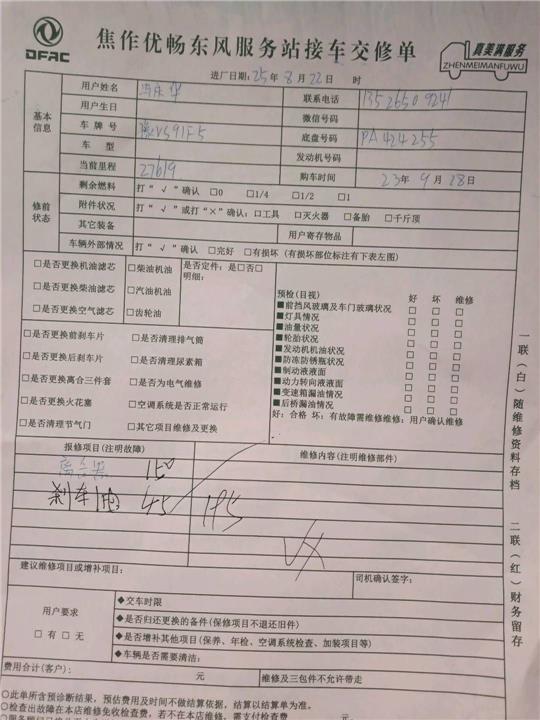 DFAC
焦作优畅东风服务站接车交修单
真美满服务
ZHENMEIMANFUWU
进厂日期：25年 8月 22日 时
基本信息
用户姓名
联系电话
用户生日
微信号码
车牌号 豫VS91F5
底盘号码 PA424255
车型
发动机号码
当前里程 27619
购车时间 23年 9月 28日
修前状态
剩余燃料 打“√”确认 □0 □1/4 □1/2 □1
附件状况 打“√”或打“×”确认：□工具 □灭火器 □备胎 □千斤顶
其它装备 用户寄存物品
车辆外部情况 打“√”确认 □完好 □有损坏（有损坏部位标注有下表左图）
□是否更换机油滤芯 □柴油机油 是否定件：是□否□
明细：
□是否更换柴油滤芯 □汽油机油
□是否更换空气滤芯 □齿轮油
预检(目视) 好 坏 维修
■前挡风玻璃及车门玻璃状况 □ □ □
■灯具情况 □ □ □
■油量状况 □ □ □
■轮胎状况 □ □ □
■发动机机油状况 □ □ □
■防冻防锈瓶状况 □ □ □
■制动液液面 □ □ □
■动力转向液液面 □ □ □
■变速箱漏油情况 □ □ □
■后桥漏油情况 □ □ □
好：合格 坏：有故障需维修维修：用户确认维修
□是否更换前刹车片 □是否清理排气筒
□是否更换后刹车片 □是否清理尿素箱
□是否更换离合三件套 □是否为电气维修
□是否更换火花塞 □空调系统是否正常运行
□是否清理节气门 □其它项目维修及更换
报修项目(注明故障) 维修内容(注明维修部件)
离合器 150
刹车 45 195
VX
建议维修项目或增补项目：
司机确认签字：
用户要求
□有□无
◆交车时限
◆是否归还更换的备件(保修项目不退还旧件)
◆是否增补其他项目(保养、年检、空调系统检查、加装项目等)
◆车辆是否需要清洁：
费用合计(客户)： 元 维修及三包件不允许带走
○此单所含预诊断结果，预估费用及时间不做结算依据，结算以结算单为准。
○检查出故障在本店维修免收检查费，若不在本店维修，需支付检查费 元。
一联（白）随维修资料存档
二联（红）财务留存